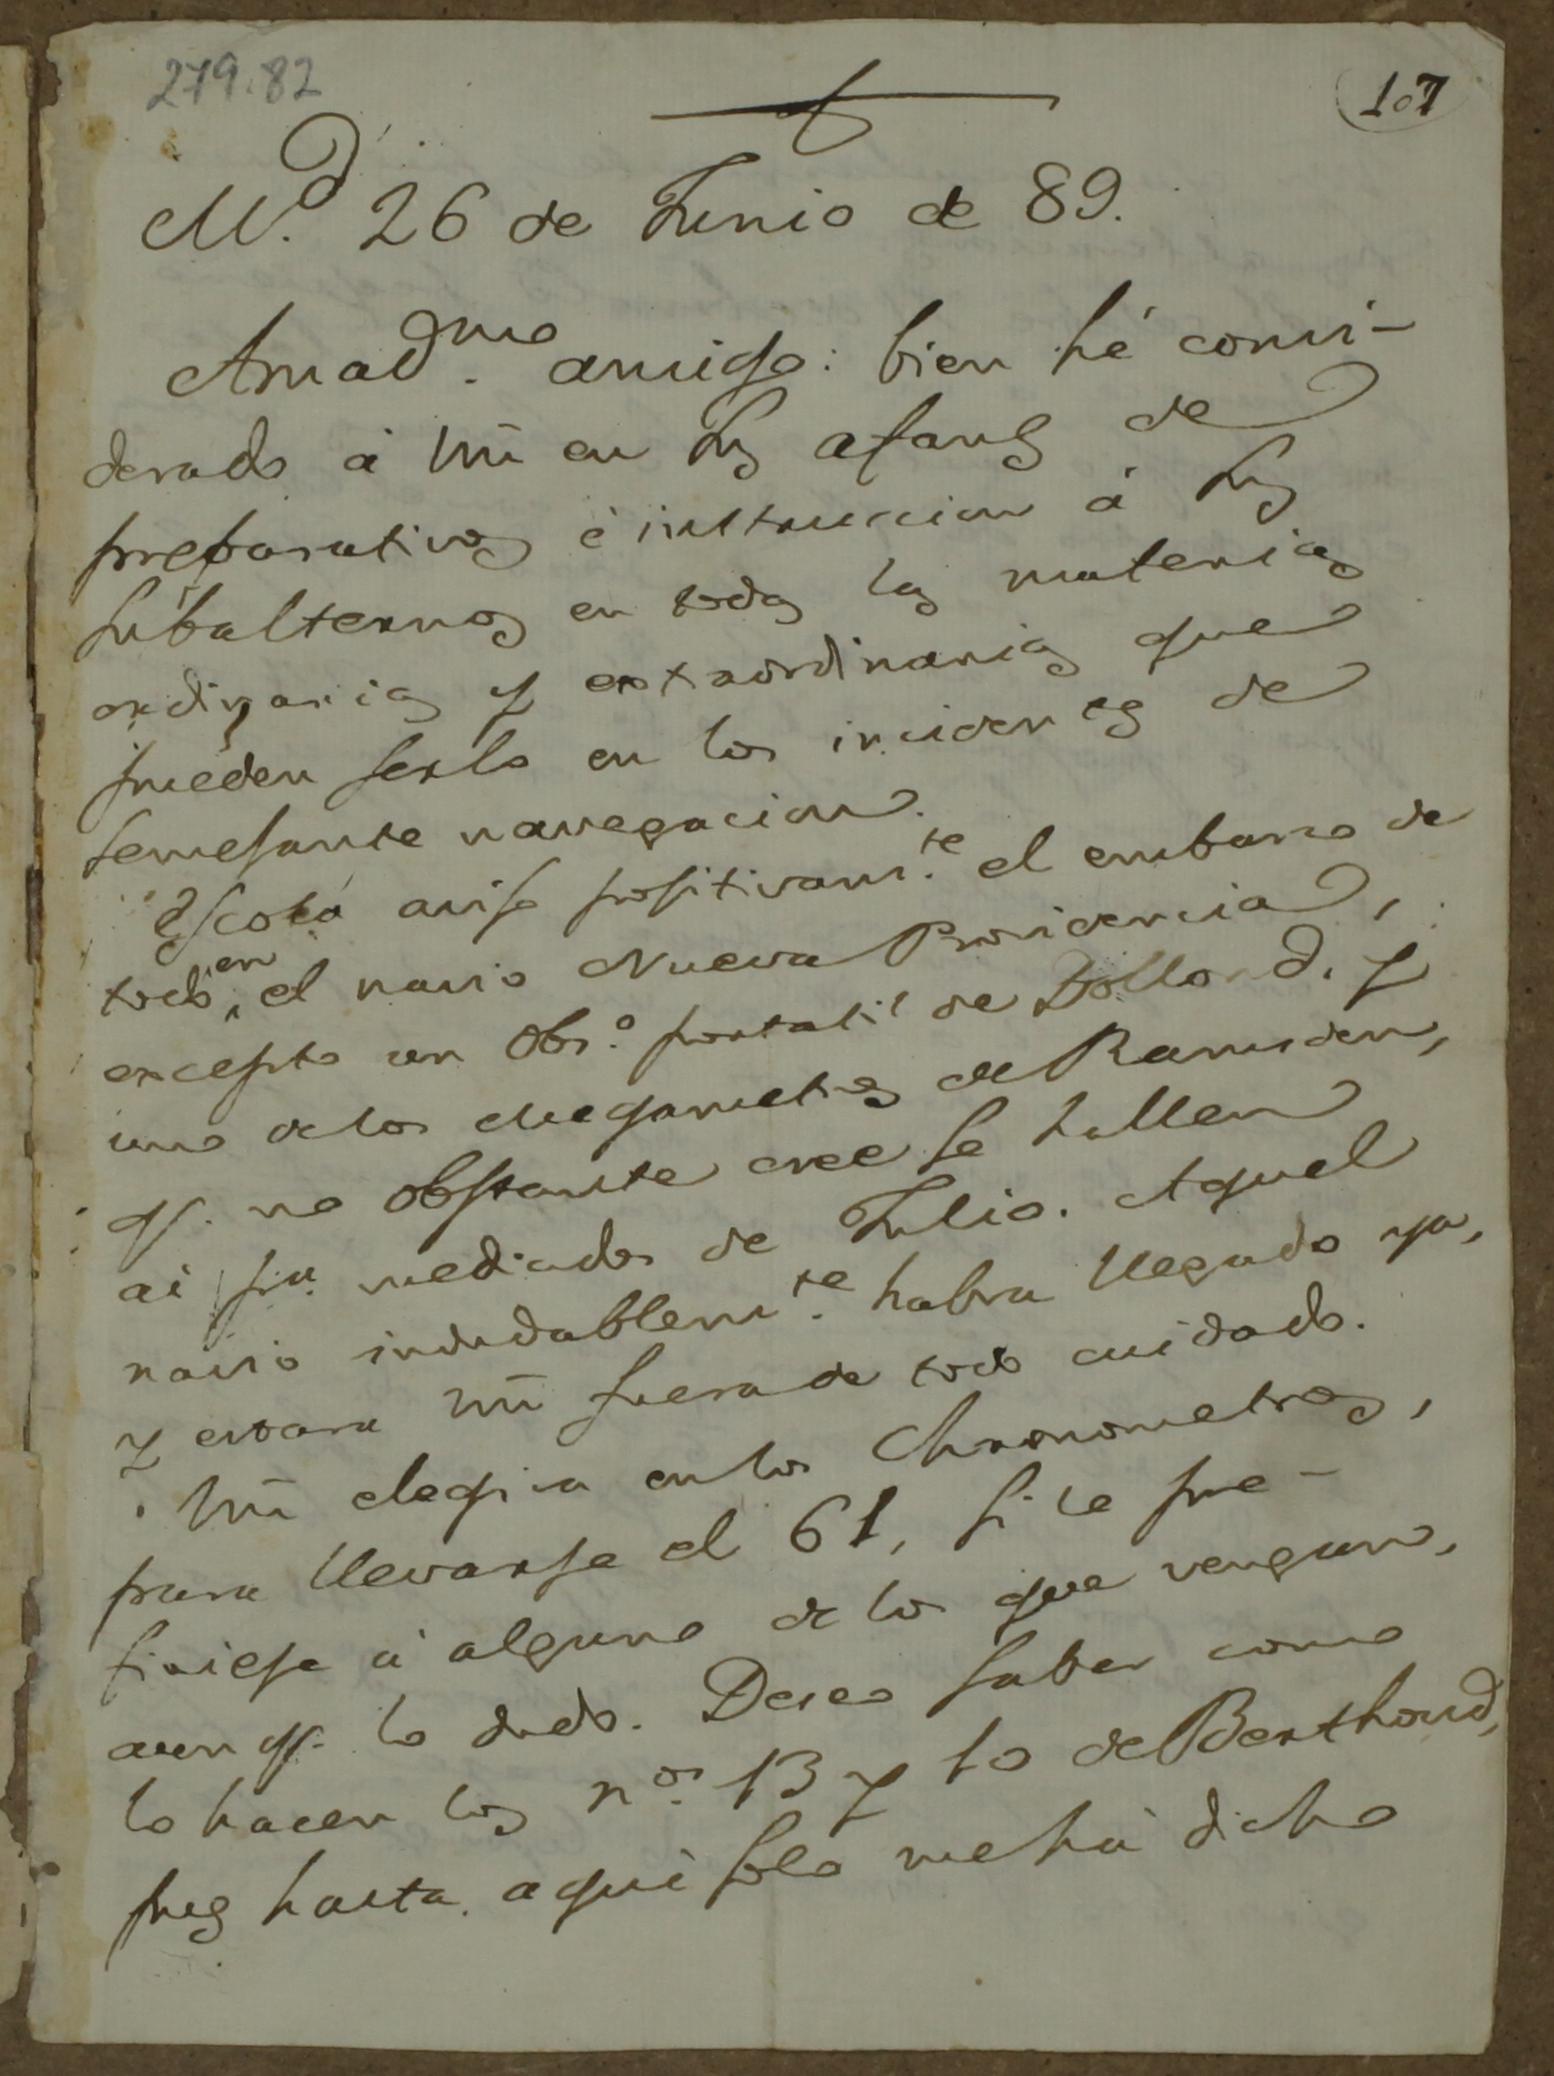 279.82
107
M.d 26 de Junio de 89.
Amad.mo amigo: bien hé consi-
derado á Vm en sus afanes de
preparativos é instruccion á sus
subalternos en todas las materias
ordinarias y extraordinarias que
pueden serlo en los incidentes de
semejante navegacion.
Escoba avisa positivam.te el embarco de
todo en el navio Nueva Providencia,
excepto un Obs.o portatil de Dollond, y
uno de los Megametros de Ramsden,
q.e no obstante cree se hallen
ai p.a mediados de Julio. Aquel
navio indudablem.te habra llegado ya,
y estara Vm fuera de todo cuidado.
Vm elegira en los Chronometros,
para llevarse el 61, si le pre-
firiese á alguno de los que vengan,
aunq.e lo dudo. Deseo saber como
lo hacen los n.os 13 y 10 de Berthoud,
pues hasta aqui solo me há dicho